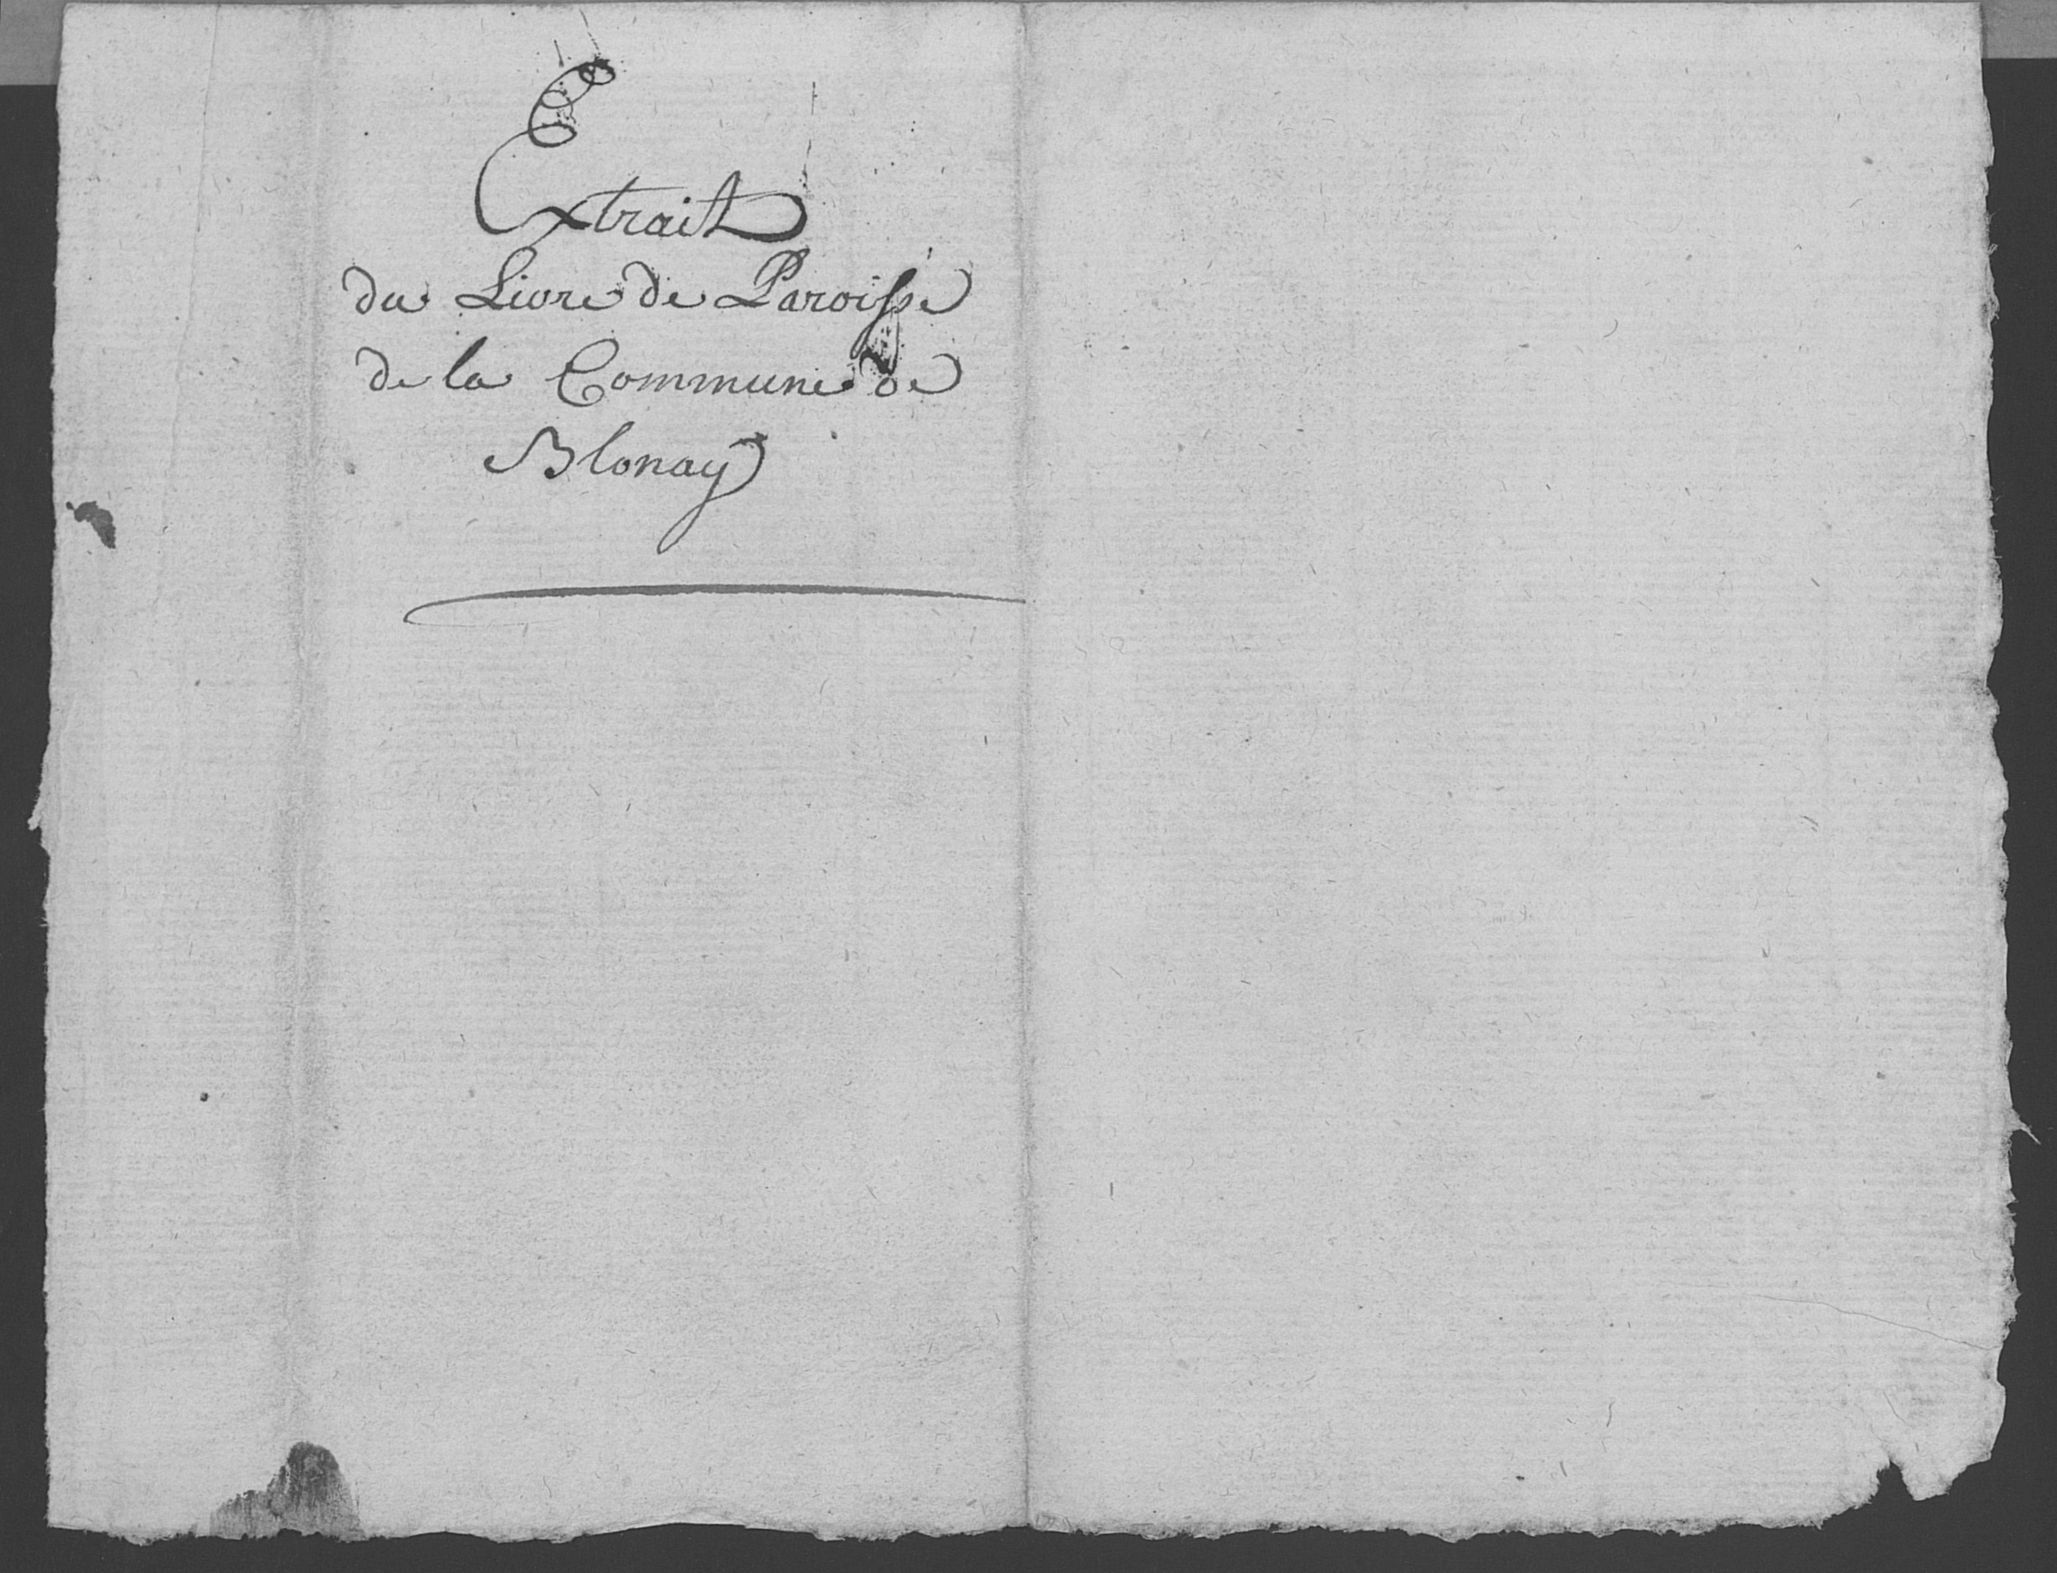 Extrait
du Livre de Paroisse
de la Commune de
Blonay